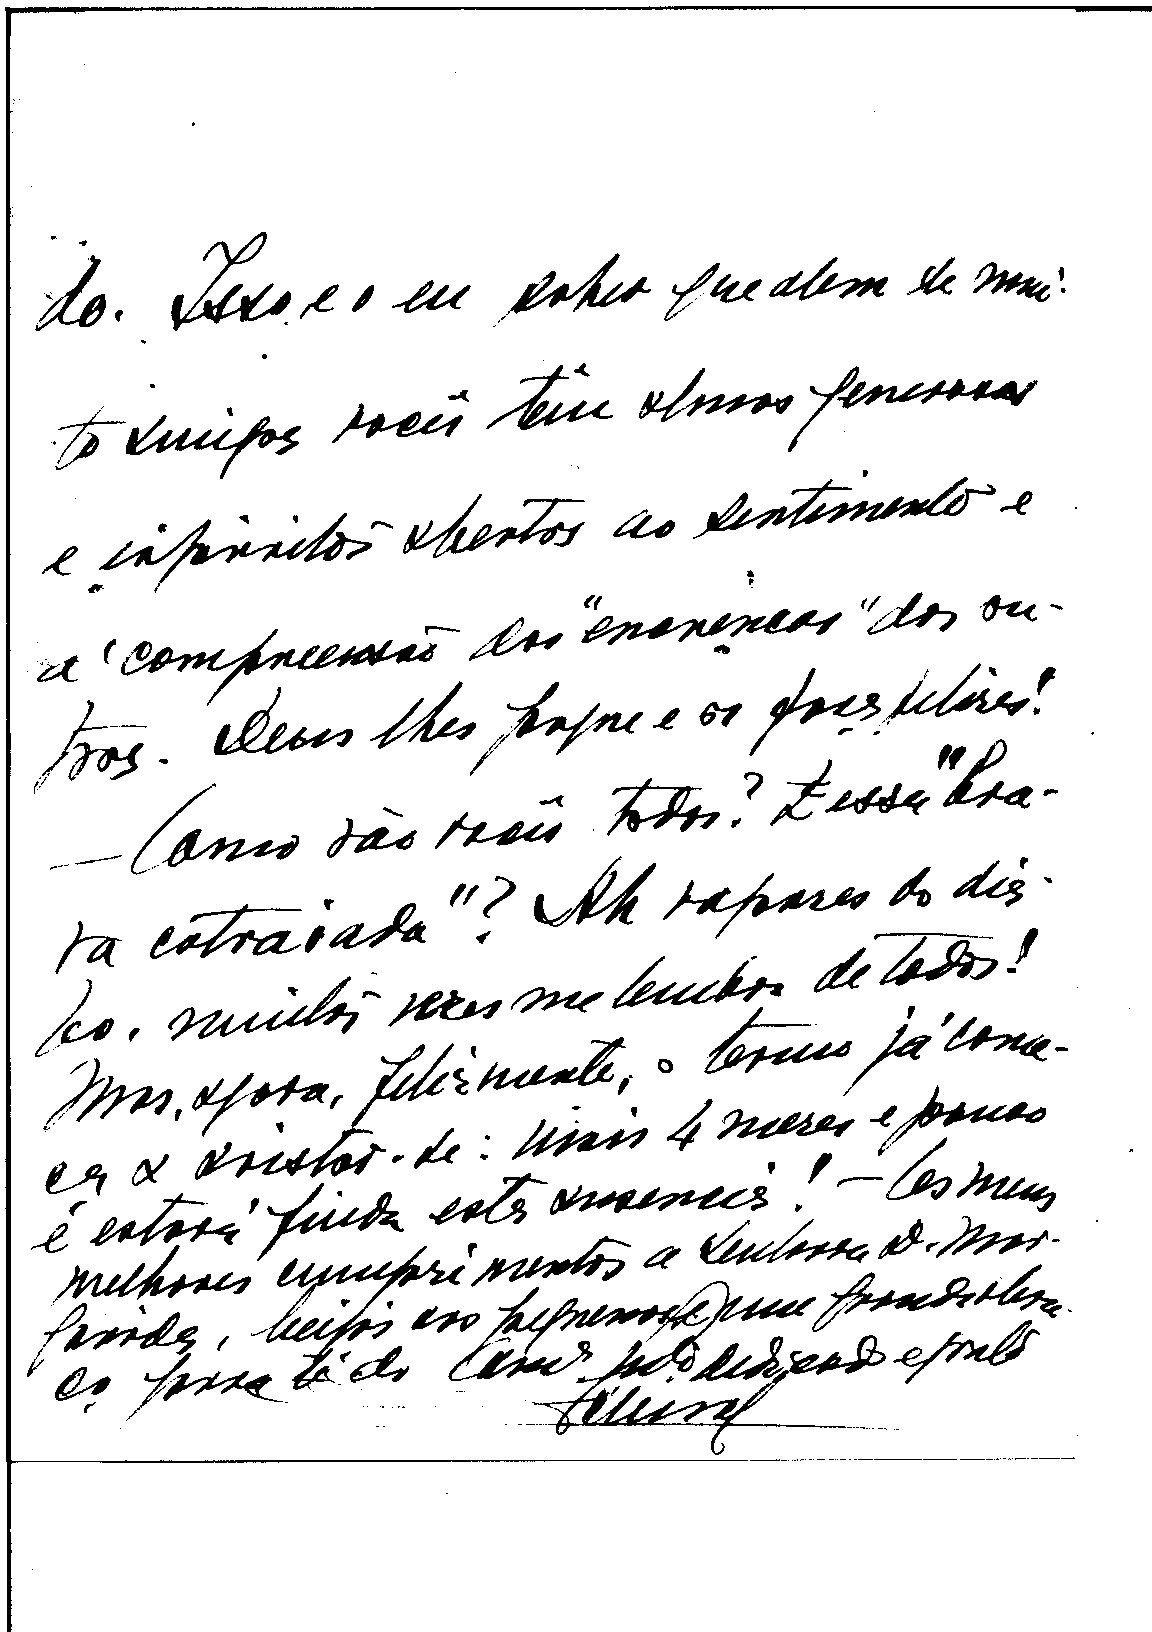 do. Isso e o eu saber que alem de mui-
to amigos vocês têm almas generosas
e espiritos abertos ao sentimento e
a' compreensão das "encrencas" dos ou-
tros. Deus lhes pague e os faça felizes!
— Como vão vocês todos? E essa "bra-
va cotraiada"? Ah rapazes do dia-
bo, muitas vezes me lembro de todos!
Mas, agora, felizmente, o termo já come-
ça a avistar-se: mais 4 meses e pouco
e estará finda esta ausencia! — Os meus
melhores cumprimentos a senhora D. Mar-
garida, beijos aos pequenos e um grande abra-
ço para ti do dedicado e grato